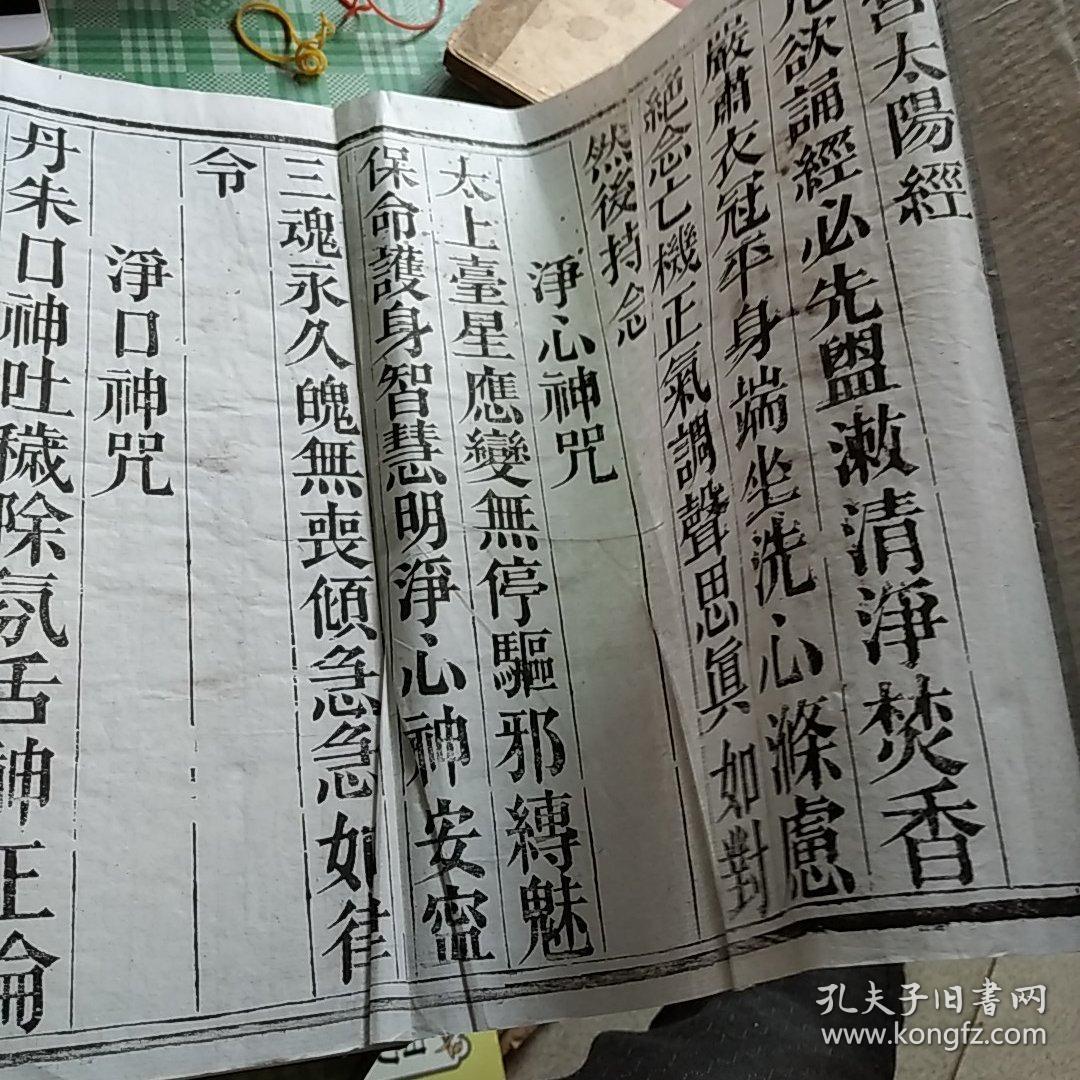 太陽經
凡欲誦經必先盥漱清淨焚香
嚴肅衣冠平身端坐洗心滌慮
絕念亡機正氣調聲思眞如對
然後持念
淨心神咒
太上臺星應變無停驅邪縛魅
保命護身智慧明淨心神安寍
三魂永久魄無喪傾急急如律
令
淨口神咒
丹朱口神吐穢除氛舌神正倫
孔夫子旧書网
www.kongfz.com